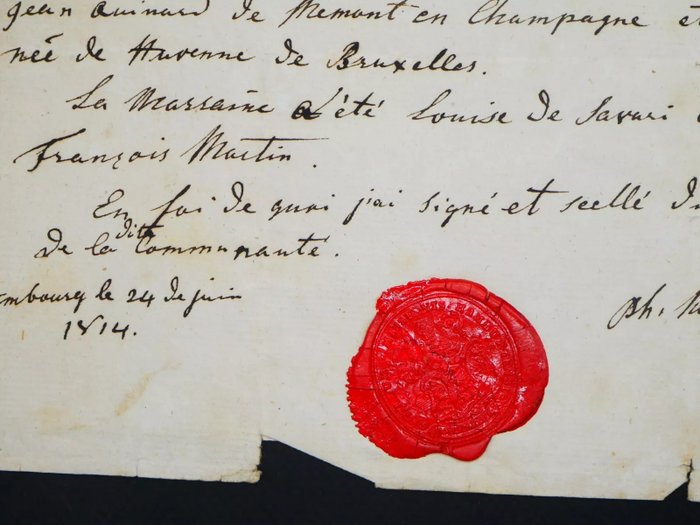 jean Quinard de Memont en Champagne et
née de Huvenne de Bruxelles.
La Marraine a été Louise de Savari
François Martin.
En foi de quoi j'ai signé et scellé du
de la dite Communauté.
mbourg le 24 de juin
1814.
Ph.